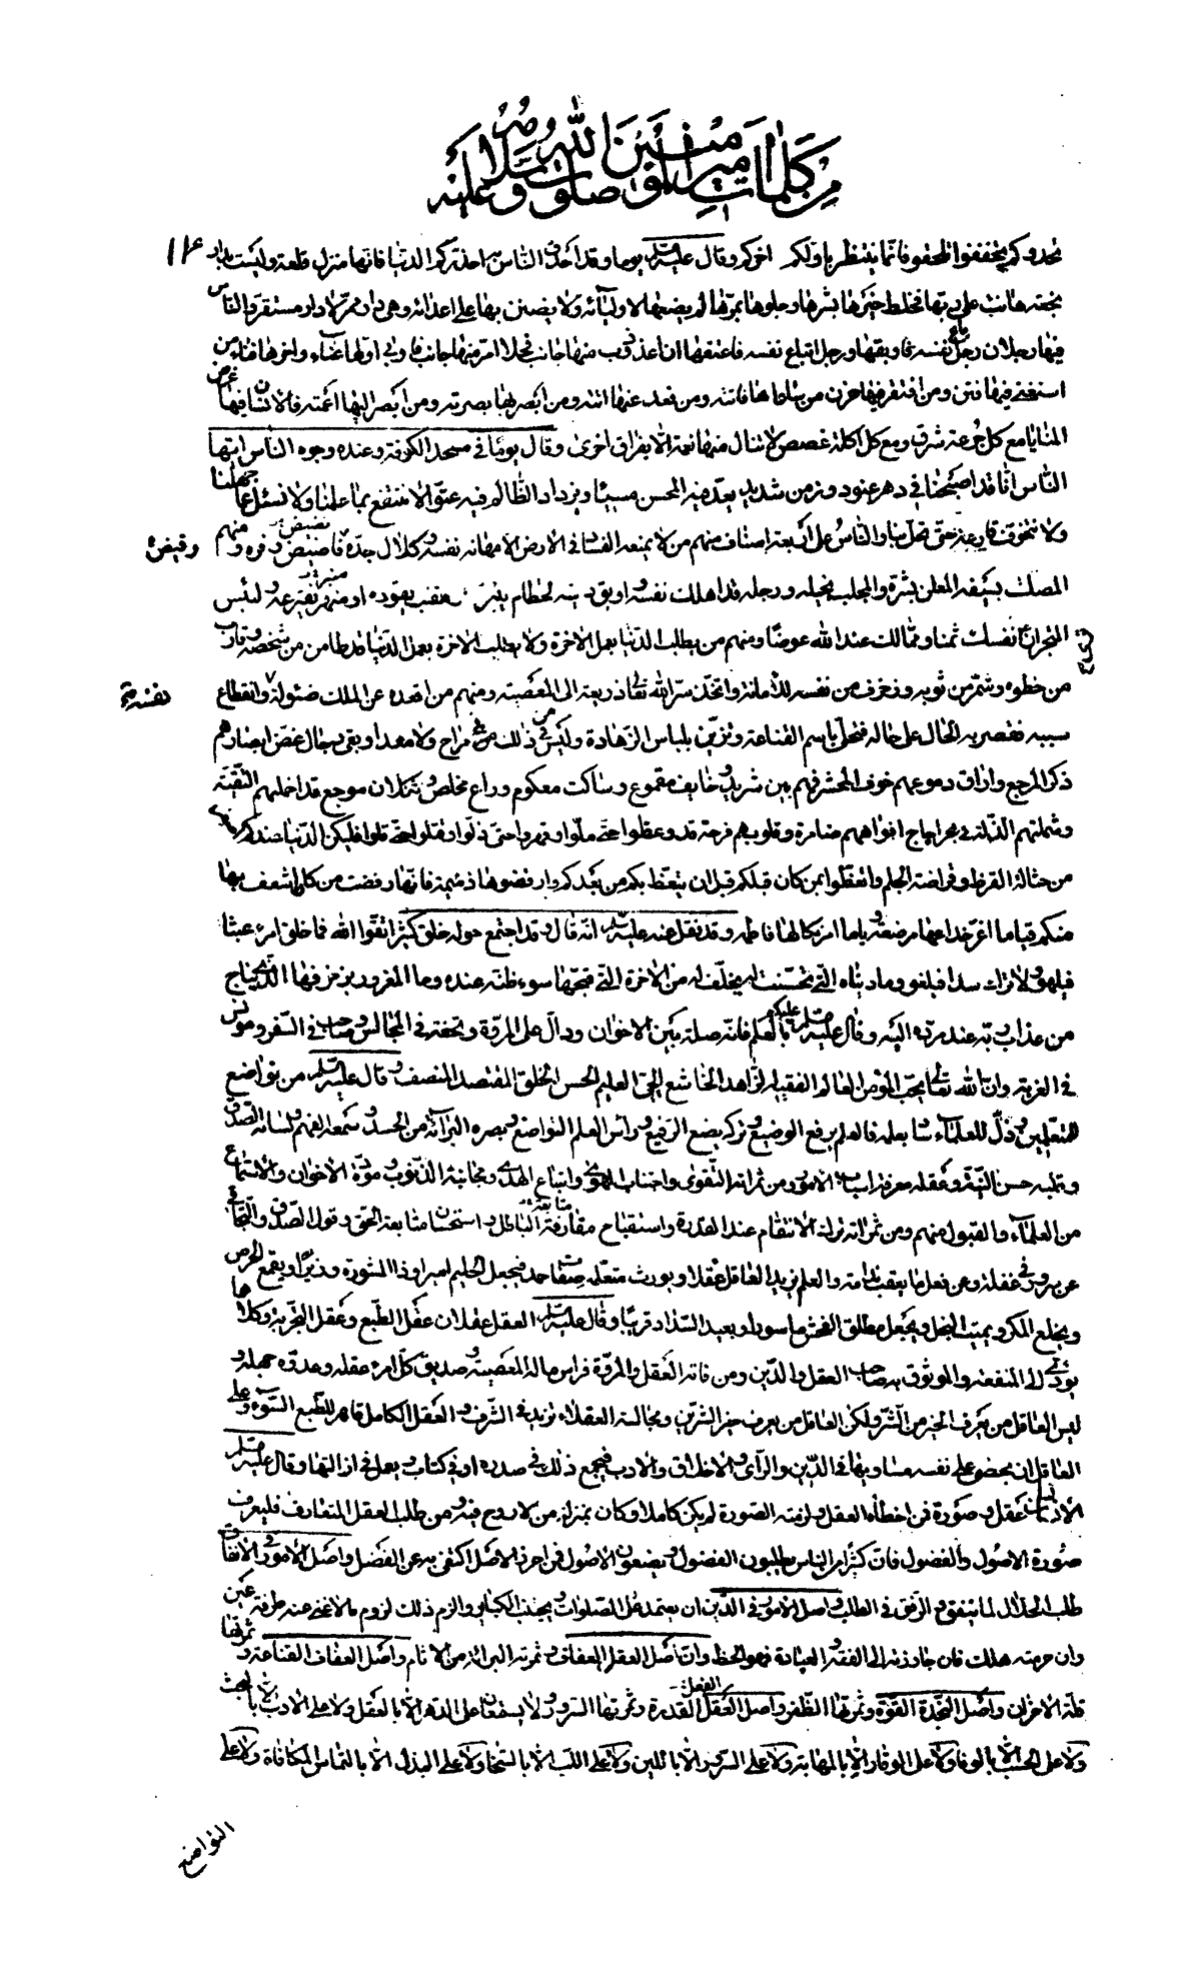 من كلمات امير المؤمنين صلوات الله وسلامه عليه
تحدوكم تخففوا تلحقوا فانما ينتظر باولكم اخركم وقال عليه السلم يوما وقد احدق الناس به احذركم الدنيا فانها منزل قلعة وليست بدار ١١٤
نجعة هانت على ربها فخلط خيرها بشرها وحلوها بمرها لم يضعها لاوليائه ولا يضنن بها على اعدائه وهي دار ممر لا دار مستقر والناس
فيها رجلان رجل باع نفسه فاوبقها ورجل ابتاع نفسه فاعتقها ان اعذوذب منها جانب فحلا امر منها جانب فاوبى اولها عناء واخرها فناء من
استغنى فيها فتن ومن افتقر فيها حزن من ساعاها فاتته ومن قعد عنها اتته ومن ابصر بها بصرته ومن ابصر اليها اعمته فالانسان فيها غرض
المنايا مع كل جرعة شرق ومع كل اكلة غصص لا تنال منها نعمة الا بفراق اخرى وقال يوما في مسجد الكوفة وعنده وجوه الناس ايها
الناس انا قد اصبحنا في دهر عنود وزمن شديد يعد فيه المحسن مسيئا ويزداد الظالم فيه عتوا لا ننتفع بما علمنا ولا نسئل عما جهلنا
ولا نتخوف قارعة حتى تحل بنا والناس على اربعة اصناف منهم من لا يمنعه الفساد في الارض الا مهانة نفسه وكلال حده ونضيض وفره ومنهم
المصلت بسيفه المعلن بشره والمجلب بخيله ورجله قد اهلك نفسه واوبق دينه لحطام ينتهزه او مقنب يقوده او منبر يفترعه ولبئس
المتجر ان ترى نفسك ثمنا ومما لك عند الله عوضا ومنهم من يطلب الدنيا بعمل الاخرة ولا يطلب الاخرة بعمل الدنيا قد طامن من شخصه وقارب
من خطوه وشمر من ثوبه وزخرف من نفسه للامانة واتخذ ستر الله تعالى ذريعة الى المعصية ومنهم من اقعده عن الملك ضئولة نفسه وانقطاع
سببه فقصر به الحال على حاله فتحلى باسم القناعة وتزين بلباس الزهادة وليس من ذلك في مراح ولا مغدا وبقى رجال غض ابصارهم
ذكر المرجع واراق دموعهم خوف المحشر فهم بين شريد وخايف مقموع وساكت مكعوم وداع مخلص وثكلان موجع قد اخملتهم التقية
وشملتهم الذلة فهم في بحر اجاج افواههم ضامزة وقلوبهم قرحة قد وعظوا حتى ملوا وقهروا حتى ذلوا وقتلوا حتى قلوا فلتكن الدنيا عندكم اصغر
من حثالة القرظ وقراضة الجلم واتعظوا بمن كان قبلكم قبل ان يتعظ بكم من بعدكم وارفضوها ذميمة فانها رفضت من كان اشغف بها
منكم وقد نقل عنه عليه السلم انه قال وقد اجتمع حوله خلق كثير اتقوا الله فما خلق امرء عبثا
فيلهو ولا ترك سدا فيلغو وما دنياه التي تحسنت له بخلف من الاخرة التي قبحها سوء ظنه عنده وما المغرور
من عذاب ربه عند مرده اليه وقال عليه السلم عليكم بالعلم فانه صلة بين الاخوان ودال على المروة وتحفة في المجالس وصاحب في السفر ومونس
في الغربة وان الله تعالى يحب المؤمن العالم الفقيه الزاهد الخاشع الحيى العليم الحسن الخلق المقتصد المنصف وقال عليه السلم من تواضع
للمتعلمين وذل للعلماء ساد بعلمه فالعلم يرفع الوضيع وتركه يضع الرفيع وراس العلم التواضع وبصره البراءة من الحسد وسمعه الفهم ولسانه الصدق
وقلبه حسن النية وعقله معرفة اسباب الامور ومن ثمراته التقوى واجتناب الهوى واتباع الهدى ومجانبة الذنوب ومودة الاخوان والاستماع
من العلماء والقبول منهم ومن ثمراته ترك الانتقام عند القدرة واستقباح مقارفة الباطل واستحسان متابعة الحق وقول الصدق والتجافي
عن سرور في غفلة وعن فعل ما يعقب ندامة والعلم يزيد العاقل عقلا ويورث متعلمه صفات حمد فيجعل الحليم اميرا وذا المشورة وزيرا ويقمع الحرص
ويخلع المكر ويميت البخل ويجعل مطلق الفحش ماسورا وبعيد السداد قريبا وقال عليه السلم العقل عقلان عقل الطبع وعقل التجربة وكلاهما
يؤدي الى المنفعة والموثوق به صاحب العقل والدين ومن فاته العقل والمروة فراس ماله المعصية وصديق كل امرء عقله وعدوه جهله و
ليس العاقل من يعرف الخير من الشر ولكن العاقل من يعرف خير الشرين ومجالسة العقلاء تزيد في الشرف والعقل الكامل قاهر للطبع السوء وعلى
العاقل ان يحصى على نفسه مساويها في الدين والراى والاخلاق والادب فيجمع ذلك في صدره او في كتاب ويعمل في ازالتها وقال عليه السلم
الانسان عقل وصورة فمن اخطاه العقل ولزمته الصورة لم يكن كاملا وكان بمنزلة من لا روح فيه ومن طلب العقل المتعارف فليعرف
صورة الاصول والفضول فان كثيرا من الناس يطلبون الفضول ويضعون الاصول فمن احرز الاصل اكتفى به عن الفضل واصل الامور في الانفاق
طلب الحلال لما ينفق والرفق في الطلب واصل الامور في الدين ان يعتمد على الصلوات ويجتنب الكباير والزم ذلك لزوم ما لا غنى عنه طرفة عين
وان حرمته هلك فان جاوزته الى الفقه والعبادة فهو الحظ وان اصل العقل العفاف وثمرته البراءة من الاثام واصل العفاف القناعة وثمرتها
قلة الاحزان واصل النجدة القوة وثمرتها الظفر واصل العقل القدرة وثمرتها السرور ولا يستعان على الدهر الا بالعقل ولا على الادب الا بالبحث
ولا على الحسب الا بالوفا ولا على الوقار الا بالمهابة ولا على السرور الا باللين ولا على اللب الا بالسخا ولا على البذل الا بالتماس المكافاة ولا على
التواضع